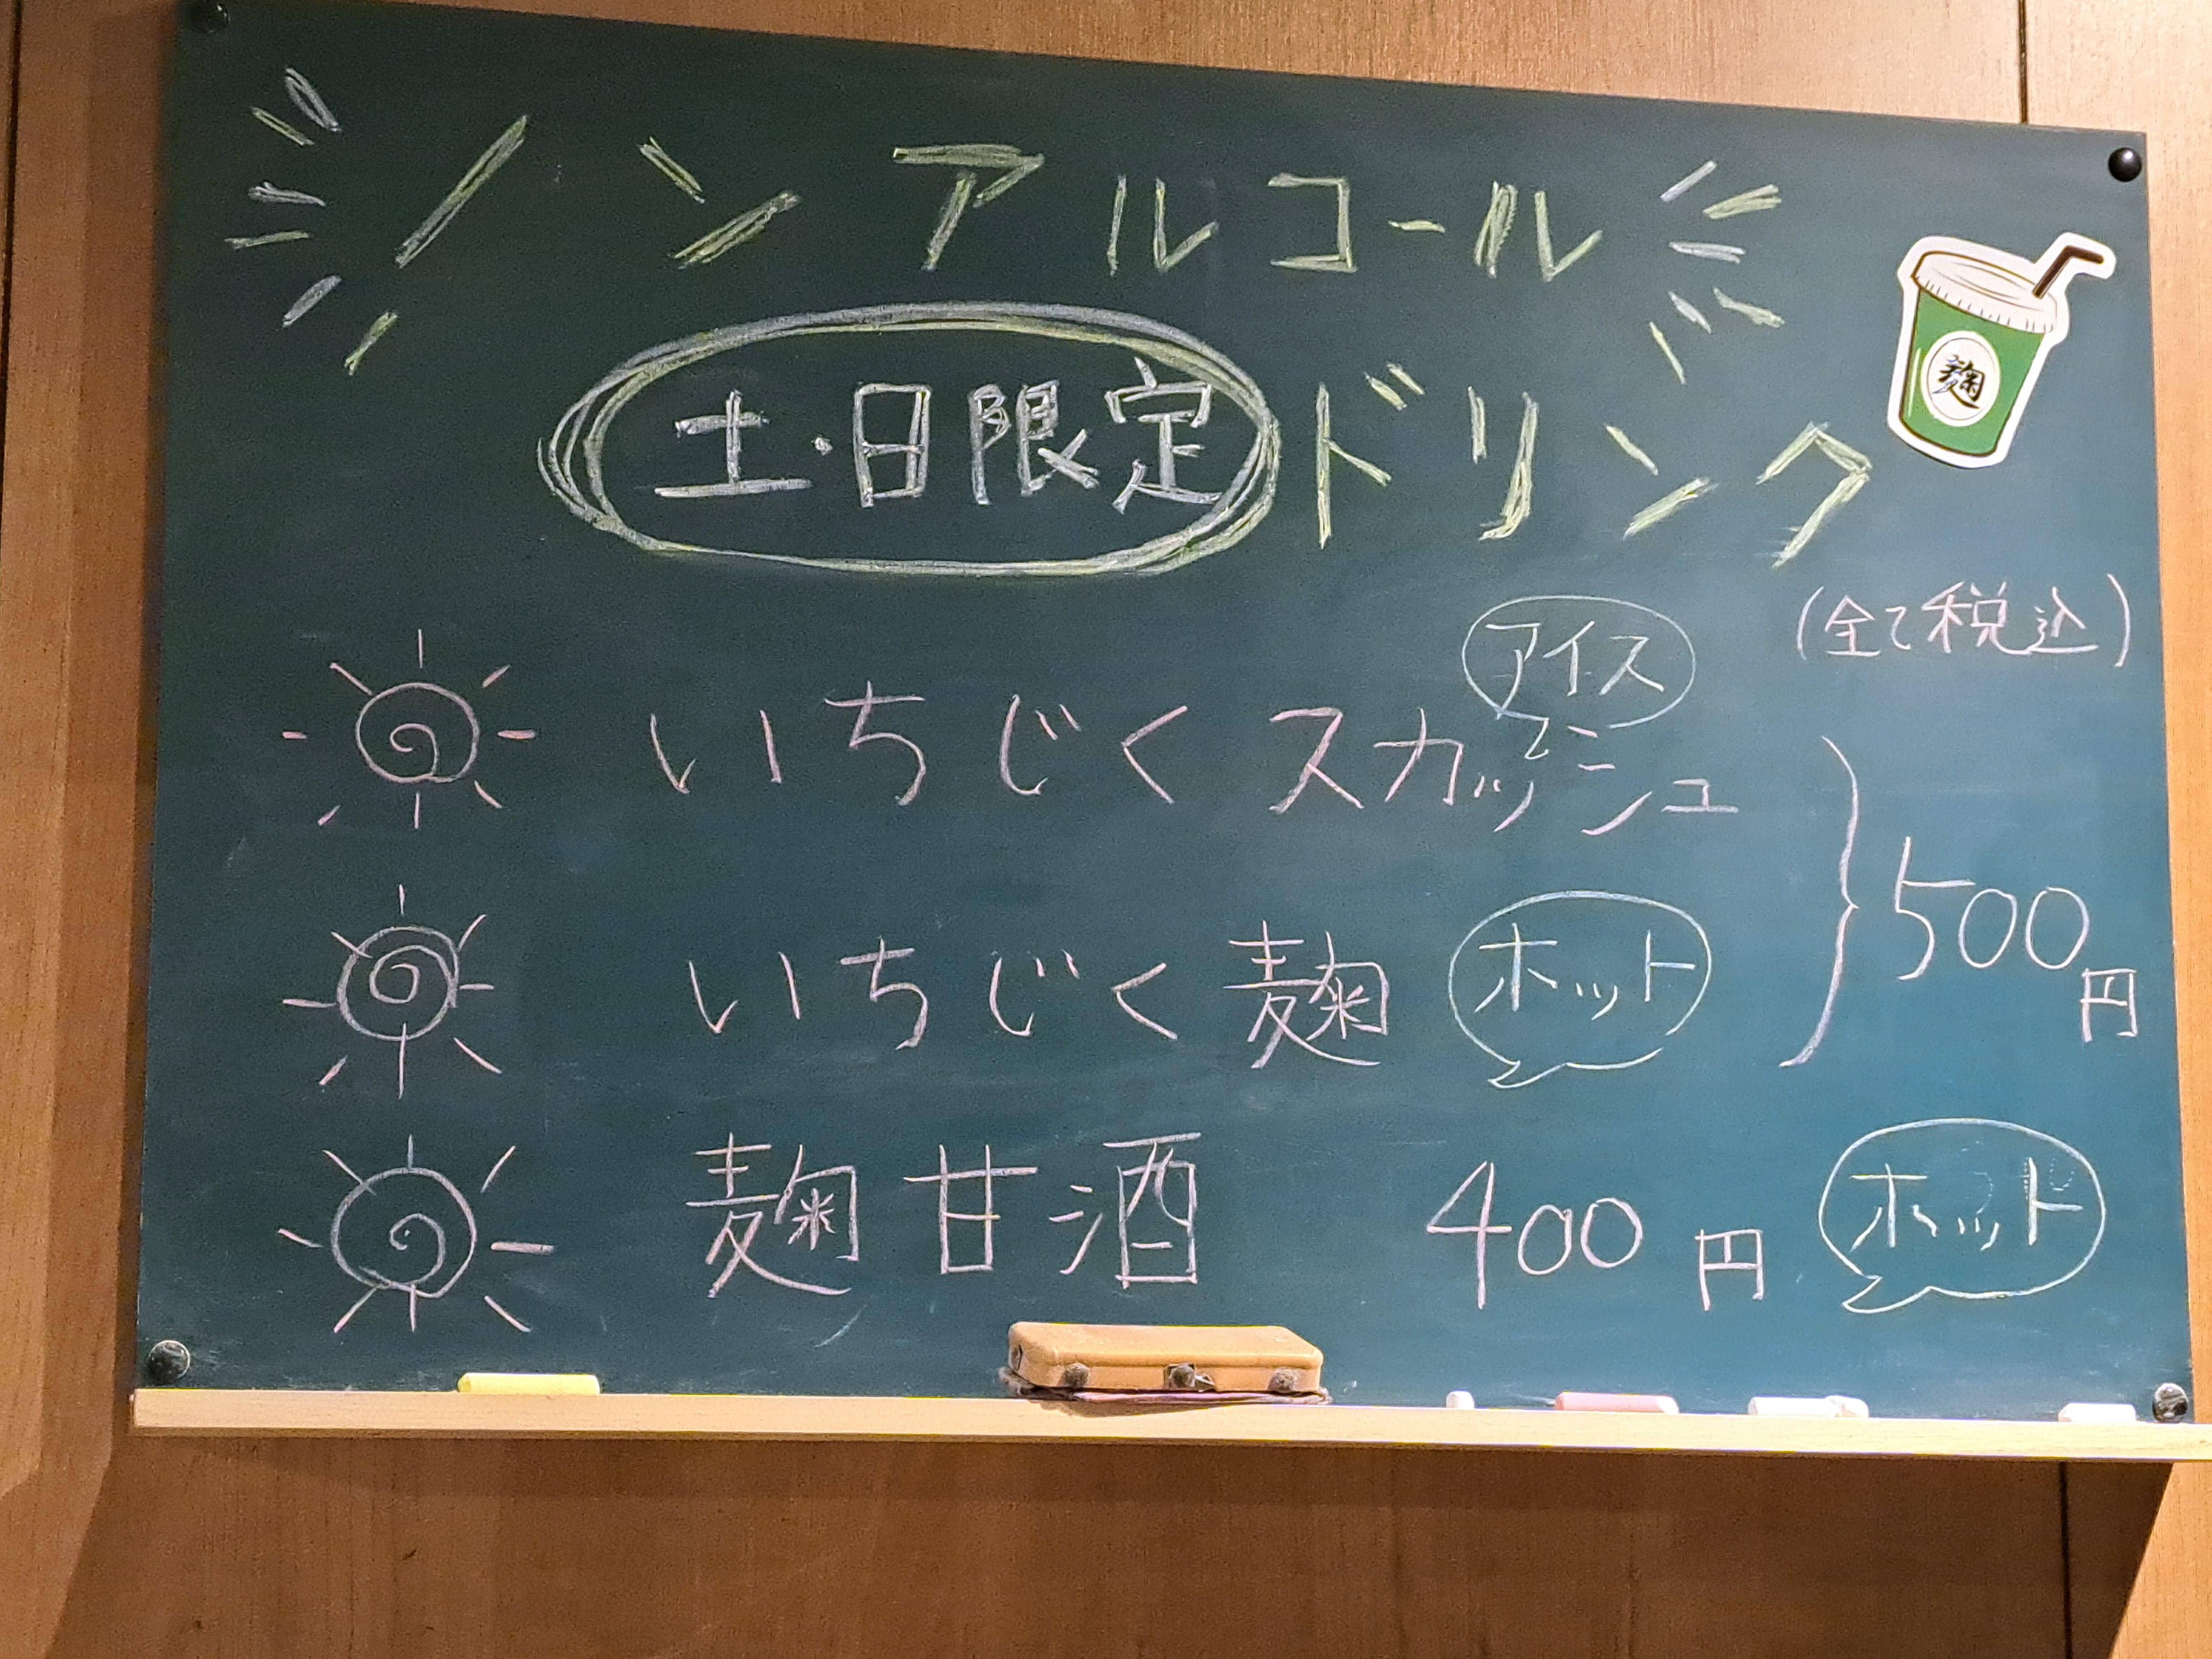 ノンアルコール
土・日限定 ドリンク
麹
(全て税込)
アイス
いちじくスカッシュ
いちじく麹 ホット
500円
麹甘酒 400円 ホット